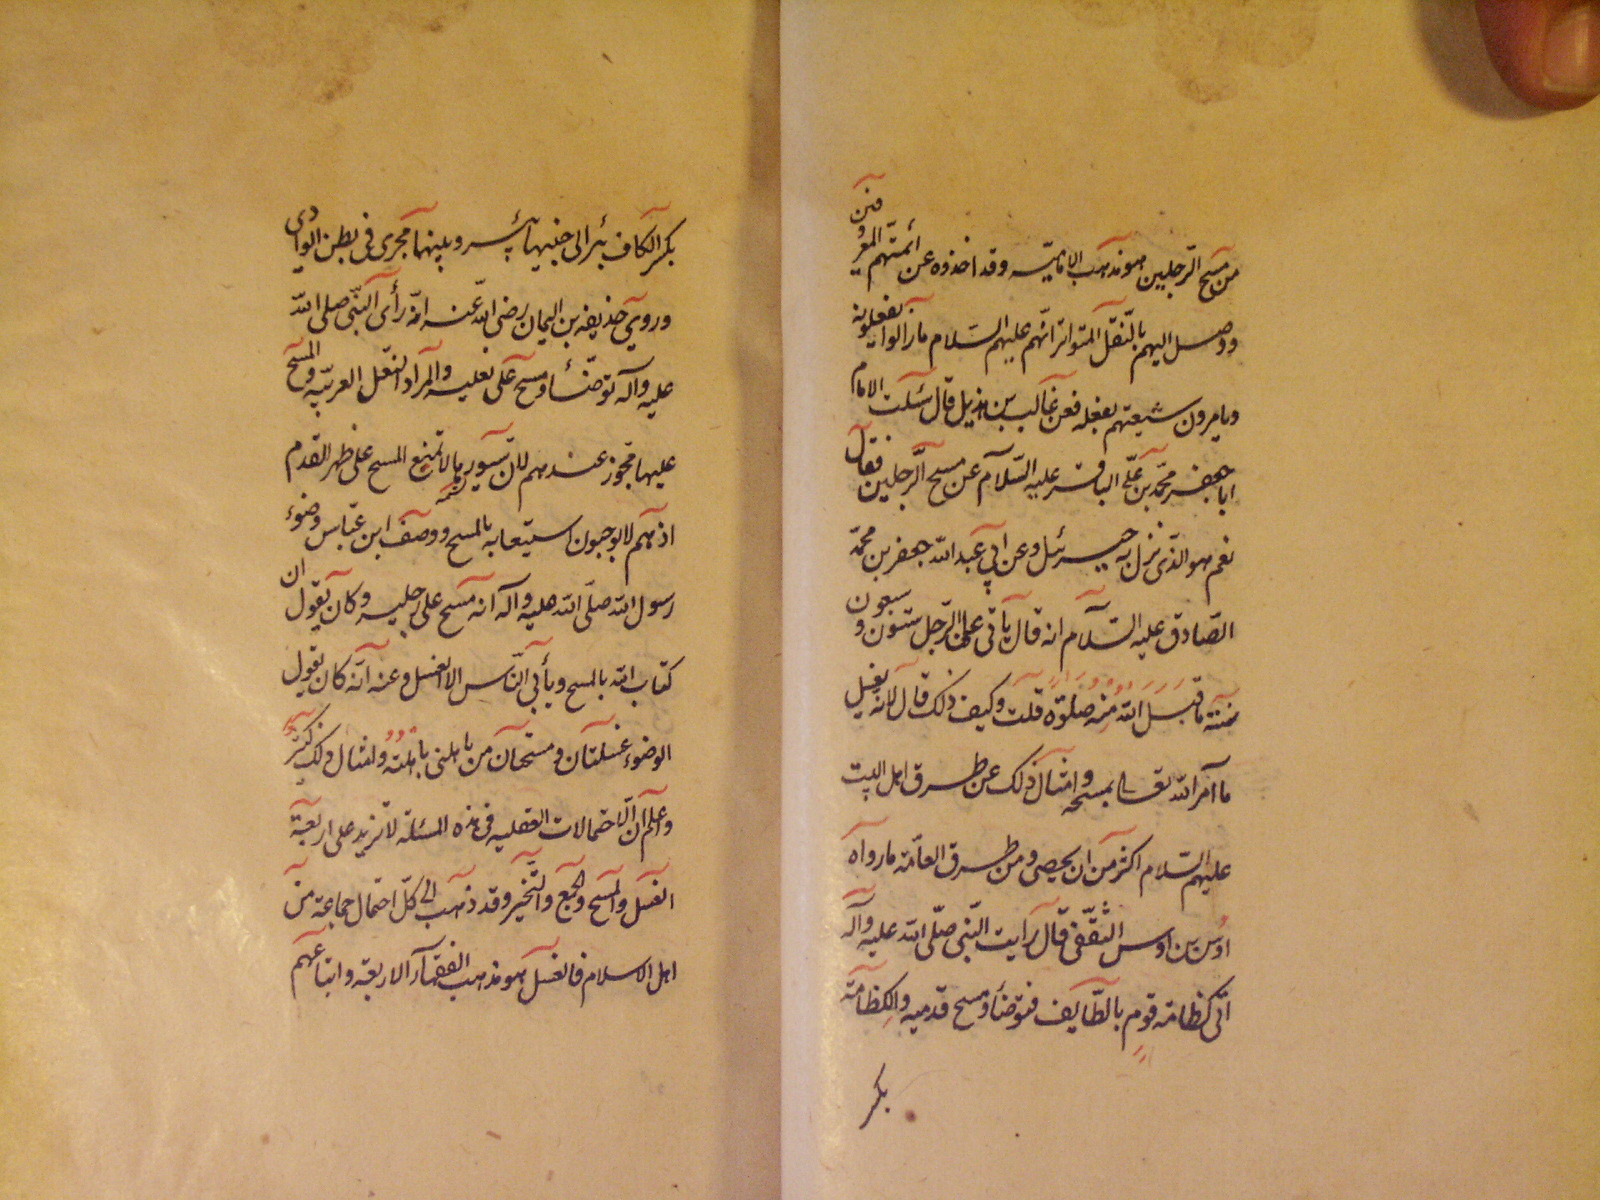 من مسح الرجلين هو مذهب الاماميّه وقد اخذوه عن ائمتهم
ووصل اليهم بالنّقل المتواتر انّهم عليهم السّلام ما زالوا يفعلونه
ويامرون شيعتهم بفعله فعن غالب بن هذيل قال سئلت الامام
ابا جعفر محمّد بن علىّ الباقر عليه السّلام عن مسح الرّجلين فقال
نعم هو الّذى نزل به جبرئيل وعن ابى عبد الله جعفر بن محمّد
الصّادق عليه السّلام انه قال ياتى على الرّجل ستون و سبعون
سنة ما قبل الله منه صلوة قلت وكيف ذلك قال لانه يغسل
ما امر الله تعالى بمسحه وامثال ذلك عن طرق اهل البيت
عليهم السّلام اكثر من ان يحصى ومن طرق العامّه ما رواه
اوس بن اوس الثّقفى قال رايت النّبى صلّى الله عليه وآله
اتى كظامة قوم بالطّايف فتوضأ ومسح قدميه والكظامة
بكسر
بكسر الكاف بئر الى جنبها بئر وبينهما مجرى فى بطن الوادى
وروى حذيفه بن اليمان رضى الله عنه انه رأى النّبى صلى الله
عليه وآله توضّأ ومسح على نعليه والمراد النعل العربيّه والمسح
عليها مجوز عندهم لان سيورها لا تمنع المسح على ظهر القدم
اذ هم لا يوجبون استيعابه بالمسح ووصف ابن عبّاس وضوء
رسول الله صلّى الله عليه وآله انه مسح على رجليه وكان يقول ان
كتاب الله بالمسح ويأبى النّاس الا الغسل وعنه انّه كان يقول
الوضوء غسلتان ومسحتان من باهلنى باهلته وامثال ذلك كثير
واعلم انّ الاحتمالات العقليه فى هذه المسئلة لا تزيد على اربعة
الغسل والمسح والجمع والتّخيير وقد ذهب الى كلّ احتمال جماعة من
اهل الاسلام فالغسل هو مذهب الفقهاء الاربعة واتباعهم